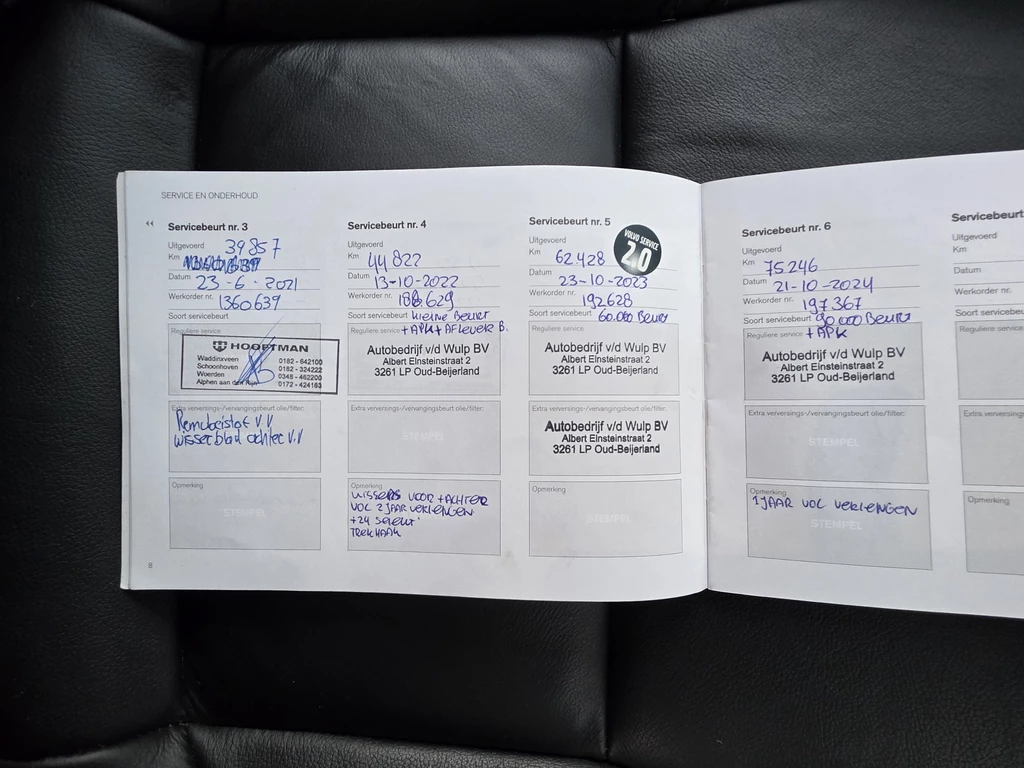 SERVICE EN ONDERHOUD
Servicebeurt nr. 3
Uitgevoerd
39857
Km
Datum 23-6-2021
Werkorder nr. 1360639
Soort servicebeurt
Reguliere service
HOOFTMAN
Waddinxveen 0182 - 642100
Schoonhoven 0182 - 324222
Woerden 0348 - 462200
Alphen aan den Rijn 0172 - 424163
Extra verversings-/vervangingsbeurt olie/filter:
Remvloeistof V.V
wisserblad achter V.V
Opmerking
STEMPEL
8
Servicebeurt nr. 4
Uitgevoerd
Km 44822
Datum 13-10-2022
Werkorder nr. 188629
Soort servicebeurt kleine Beurt
Reguliere service +APK+Aflever B.
Autobedrijf v/d Wulp BV
Albert Einsteinstraat 2
3261 LP Oud-Beijerland
Extra verversings-/vervangingsbeurt olie/filter:
STEMPEL
Opmerking
WISSERS VOOR +ACHTER
VOC 2 JAAR VERLENGEN
+24 SELEKT
TREKHAAK
Servicebeurt nr. 5
VOLVO SERVICE
2.0
Uitgevoerd
Km 62428
Datum 23-10-2023
Werkorder nr. 192628
Soort servicebeurt 60.000 Beurt
Reguliere service
Autobedrijf v/d Wulp BV
Albert Einsteinstraat 2
3261 LP Oud-Beijerland
Extra verversings-/vervangingsbeurt olie/filter:
Autobedrijf v/d Wulp BV
Albert Einsteinstraat 2
3261 LP Oud-Beijerland
Opmerking
STEMPEL
Servicebeurt nr. 6
Uitgevoerd
Km 75246
Datum 21-10-2024
Werkorder nr. 197367
Soort servicebeurt 90.000 Beurt
Reguliere service +APK
Autobedrijf v/d Wulp BV
Albert Einsteinstraat 2
3261 LP Oud-Beijerland
Extra verversings-/vervangingsbeurt olie/filter:
STEMPEL
Opmerking
1 JAAR VOC VERLENGEN
STEMPEL
Servicebeurt
Uitgevoerd
Km
Datum
Werkorder nr.
Soort servicebeu
Reguliere service
Extra verversings-
Opmerking